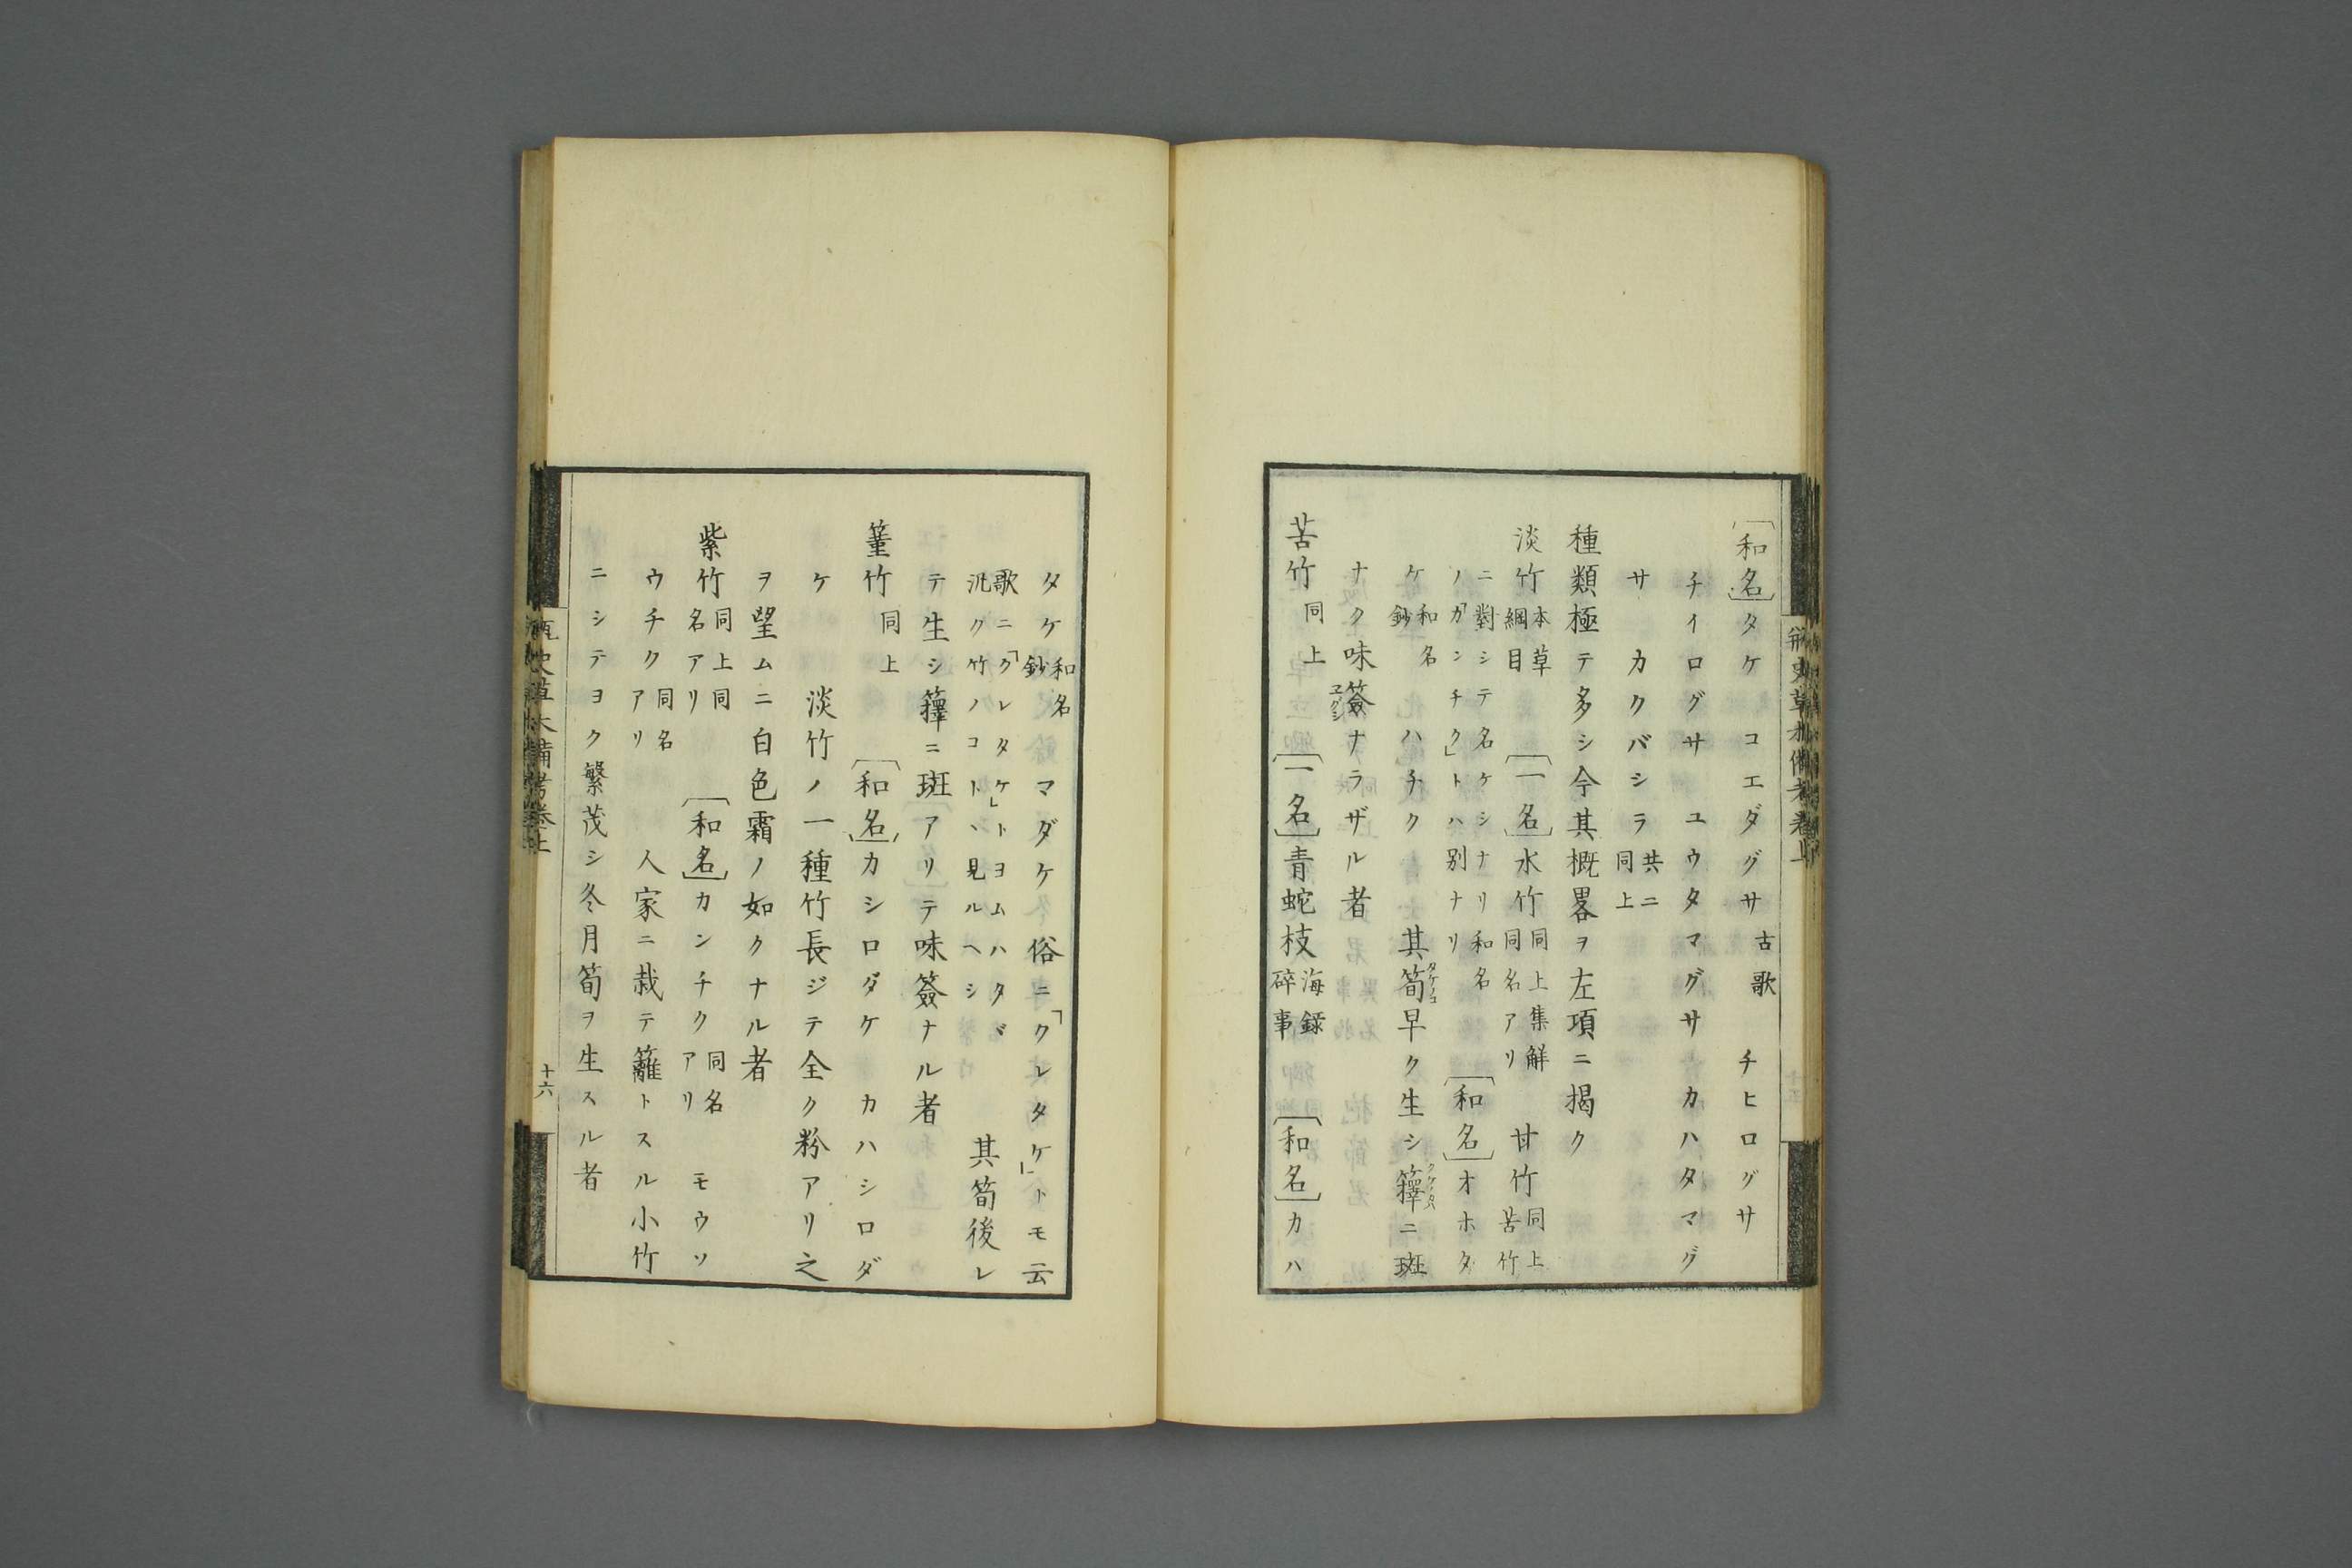 〔和名〕タケ　コエダグサ古歌　チヒログサ
チイログサ　ユウタマグサ　カハタマグ
サ　カクバシラ共ニ同上
種類極テ多シ今其概畧ヲ左項ニ掲ク
淡竹本草綱目　〔一名〕水竹同上集解同名アリ　甘竹同上苦竹
ニ對シテ名ケシナリ和名ノ「カンチク」トハ別ナリ〔和名〕オホタ
ケ和名鈔　ハチク　其筍タケノコ早ク生シ籜ニ斑
ナク味簽エグシナラザル者
苦竹同上　〔一名〕青蛇枝海録碎事　〔和名〕カハ
タケ和名鈔　マダケ　俗ニ「クレタケ」トモ云
歌ニ「クレタケ」トヨムハタヾ汎ク竹ノコトヽ見ルヘシ　其筍後レ
テ生シ籜ニ斑アリテ味簽ナル者
篁竹同上　〔和名〕カシロダケ　カハシロダ
ケ　淡竹ノ一種竹長ジテ全ク粉アリ之
ヲ望ムニ白色霜ノ如クナル者
紫竹同上同名アリ　〔和名〕カンチク同名アリ　モウソ
ウチク同名アリ　人家ニ栽テ籬トスル小竹
ニシテヨク繁茂シ冬月筍ヲ生スル者
十六